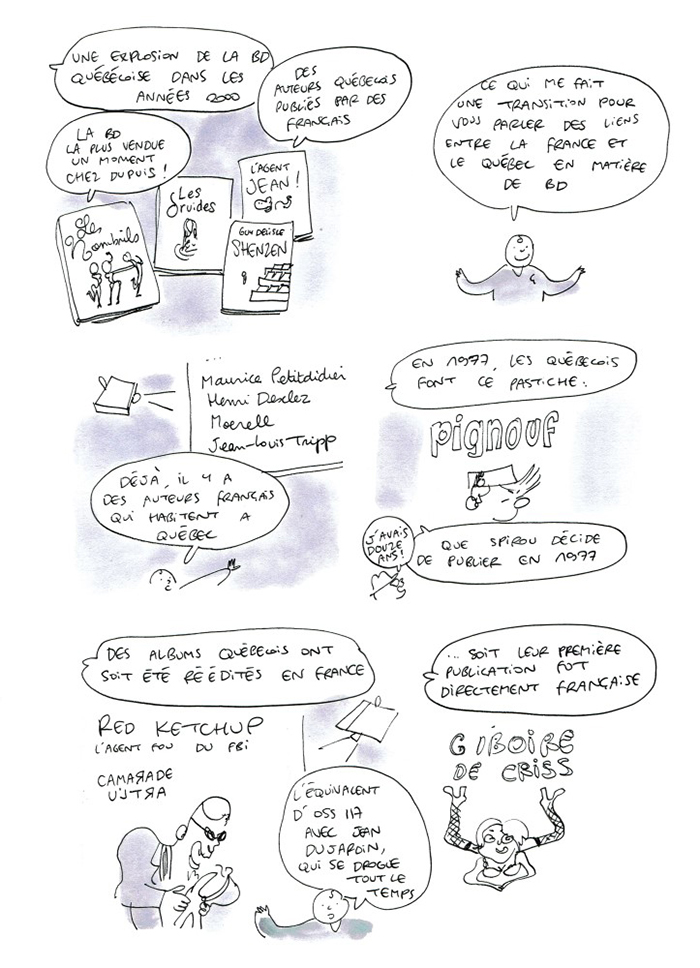 UNE EXPLOSION DE LA BD
QUÉBÉCOISE DANS LES
ANNÉES 2000
DES
AUTEURS QUÉBECOIS
PUBLIÉS PAR DES
FRANÇAIS
LA BD
LA PLUS VENDUE
UN MOMENT
CHEZ DUPUIS !
Les
Nombrils
Les
Druides
L'AGENT
JEAN !
GUY DELISLE
SHENZEN
CE QUI ME FAIT
UNE TRANSITION POUR
VOUS PARLER DES LIENS
ENTRE LA FRANCE ET
LE QUÉBEC EN MATIÈRE
DE BD
...
Maurice Petitdidier
Henri Desclez
Moerell
Jean-Louis Tripp
DÉJÀ, IL Y A
DES AUTEURS FRANÇAIS
QUI HABITENT A
QUÉBEC
EN 1977, LES QUÉBECOIS
FONT CE PASTICHE :
pignouf
J'AVAIS
DOUZE
ANS !
QUE SPIROU DÉCIDE
DE PUBLIER EN 1977
DES ALBUMS QUÉBECOIS ONT
SOIT ÉTÉ RÉÉDITÉS EN FRANCE
RED KETCHUP
L'AGENT FOU DU FBI
CAMAЯADE
U'LTЯA
L'ÉQUIVALENT
D'OSS 117
AVEC JEAN
DUJARDIN,
QUI SE DROGUE
TOUT LE
TEMPS
... SOIT LEUR PREMIÈRE
PUBLICATION FUT
DIRECTEMENT FRANÇAISE
GIBOIRE
DE CRISS